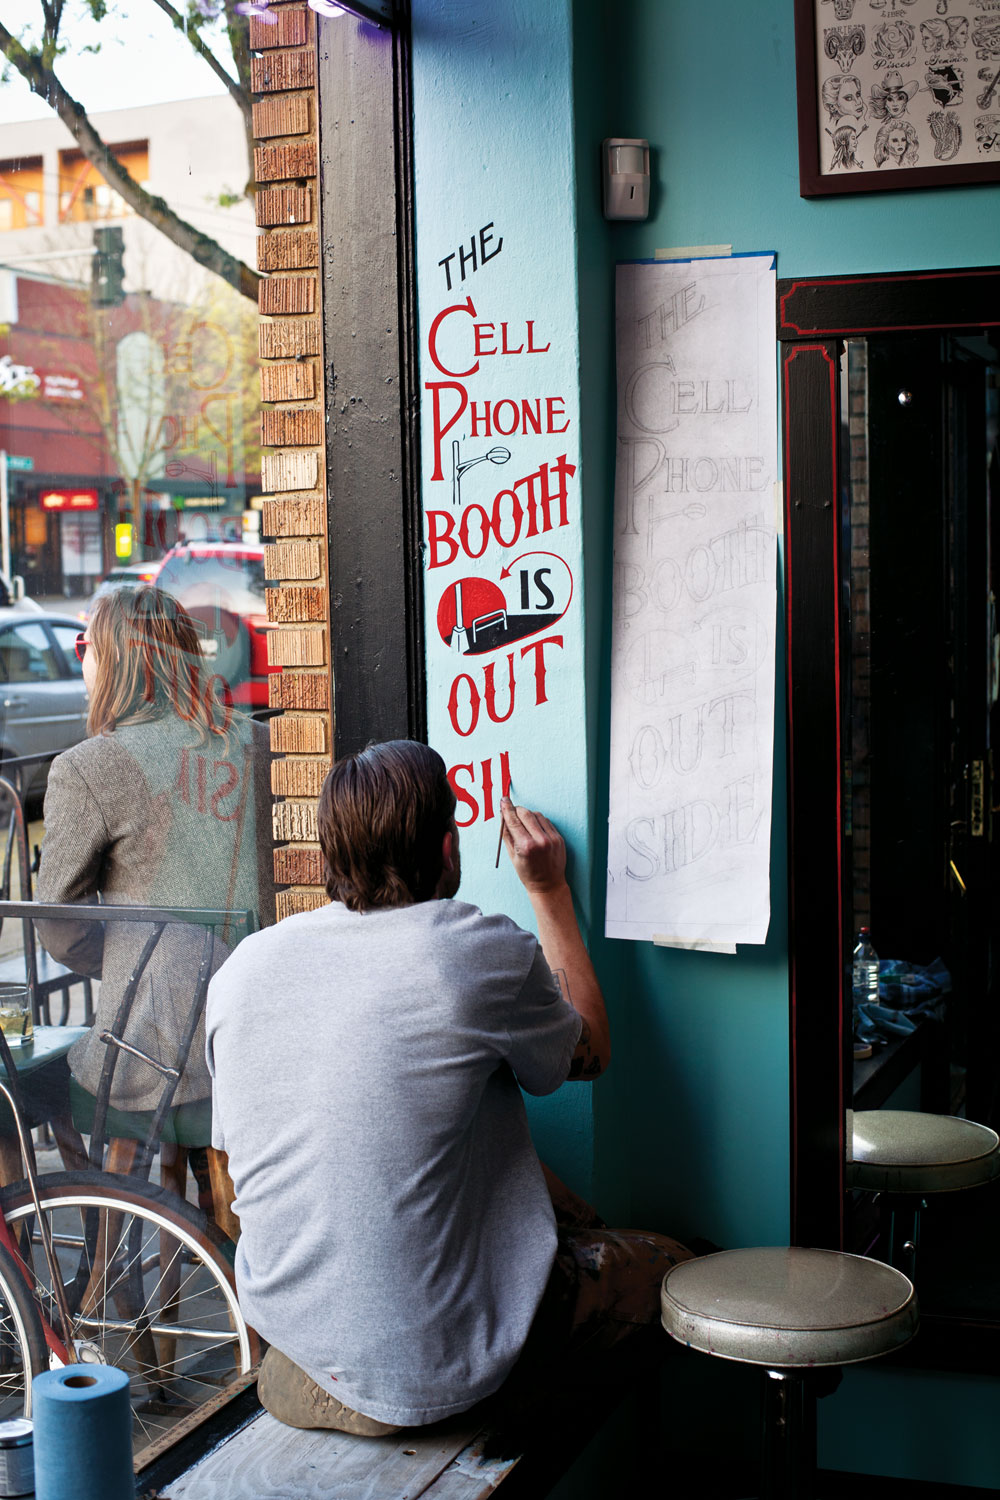 THE
CELL
PHONE
BOOTH
IS
OUT
SI
THE
CELL
PHONE
BOOTH
IS
OUT
SIDE
LIBRA
Pisces
Gemini